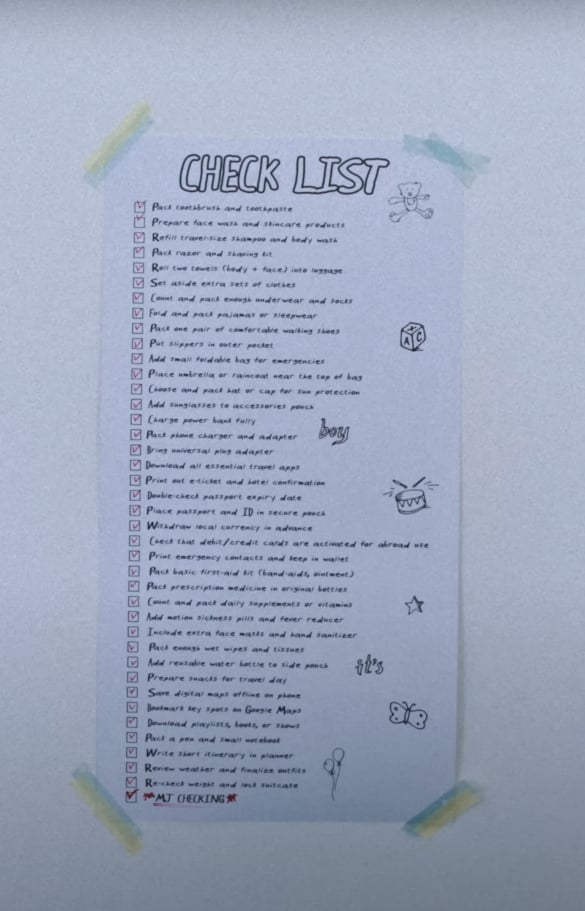 CHECK LIST
Pack toothbrush and toothpaste
Prepare face wash and skincare products
Refill travel-size shampoo and body wash
Pack razor and shaving kit
Roll two towels (body + face) into luggage
Set aside extra sets of clothes
Count and pack enough underwear and socks
Fold and pack pajamas or sleepwear
Pack one pair of comfortable walking shoes
Put slippers in outer pocket
A C
Add small foldable bag for emergencies
Place umbrella or raincoat near the top of bag
Choose and pack hat or cap for sun protection
Add sunglasses to accessories pouch
Charge power bank fully
boy
Pack phone charger and adapter
Bring universal plug adapter
Download all essential travel apps
Print out e-ticket and hotel confirmation
Double-check passport expiry date
Place passport and ID in secure pouch
Withdraw local currency in advance
Check that debit/credit cards are activated for abroad use
Print emergency contacts and keep in wallet
Pack basic first-aid kit (band-aids, ointment)
Pack prescription medicine in original bottles
Count and pack daily supplements or vitamins
Add motion sickness pills and fever reducer
Include extra face masks and hand sanitizer
Pack enough wet wipes and tissues
Add reusable water bottle to side pouch
it's
Prepare snacks for travel day
Save digital maps offline on phone
Bookmark key spots on Google Maps
Download playlists, books, or shows
Pack a pen and small notebook
Write short itinerary in planner
Review weather and finalize outfits
Re-check weight and lock suitcase
MJ CHECKING